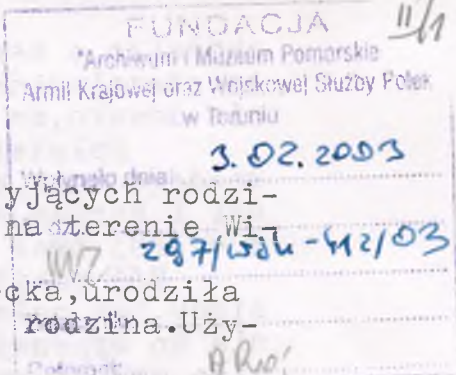 II/1
FUNDACJA
"Archiwum i Muzeum Pomorskie
Armii Krajowej oraz Wojskowej Służby Polek
w Toruniu
Wpłynęło dnia 3.02.2003
yjących rodzi-
na terenie Wi-
297/WSK-412/03
cka,urodziła
rodzina.Uży-